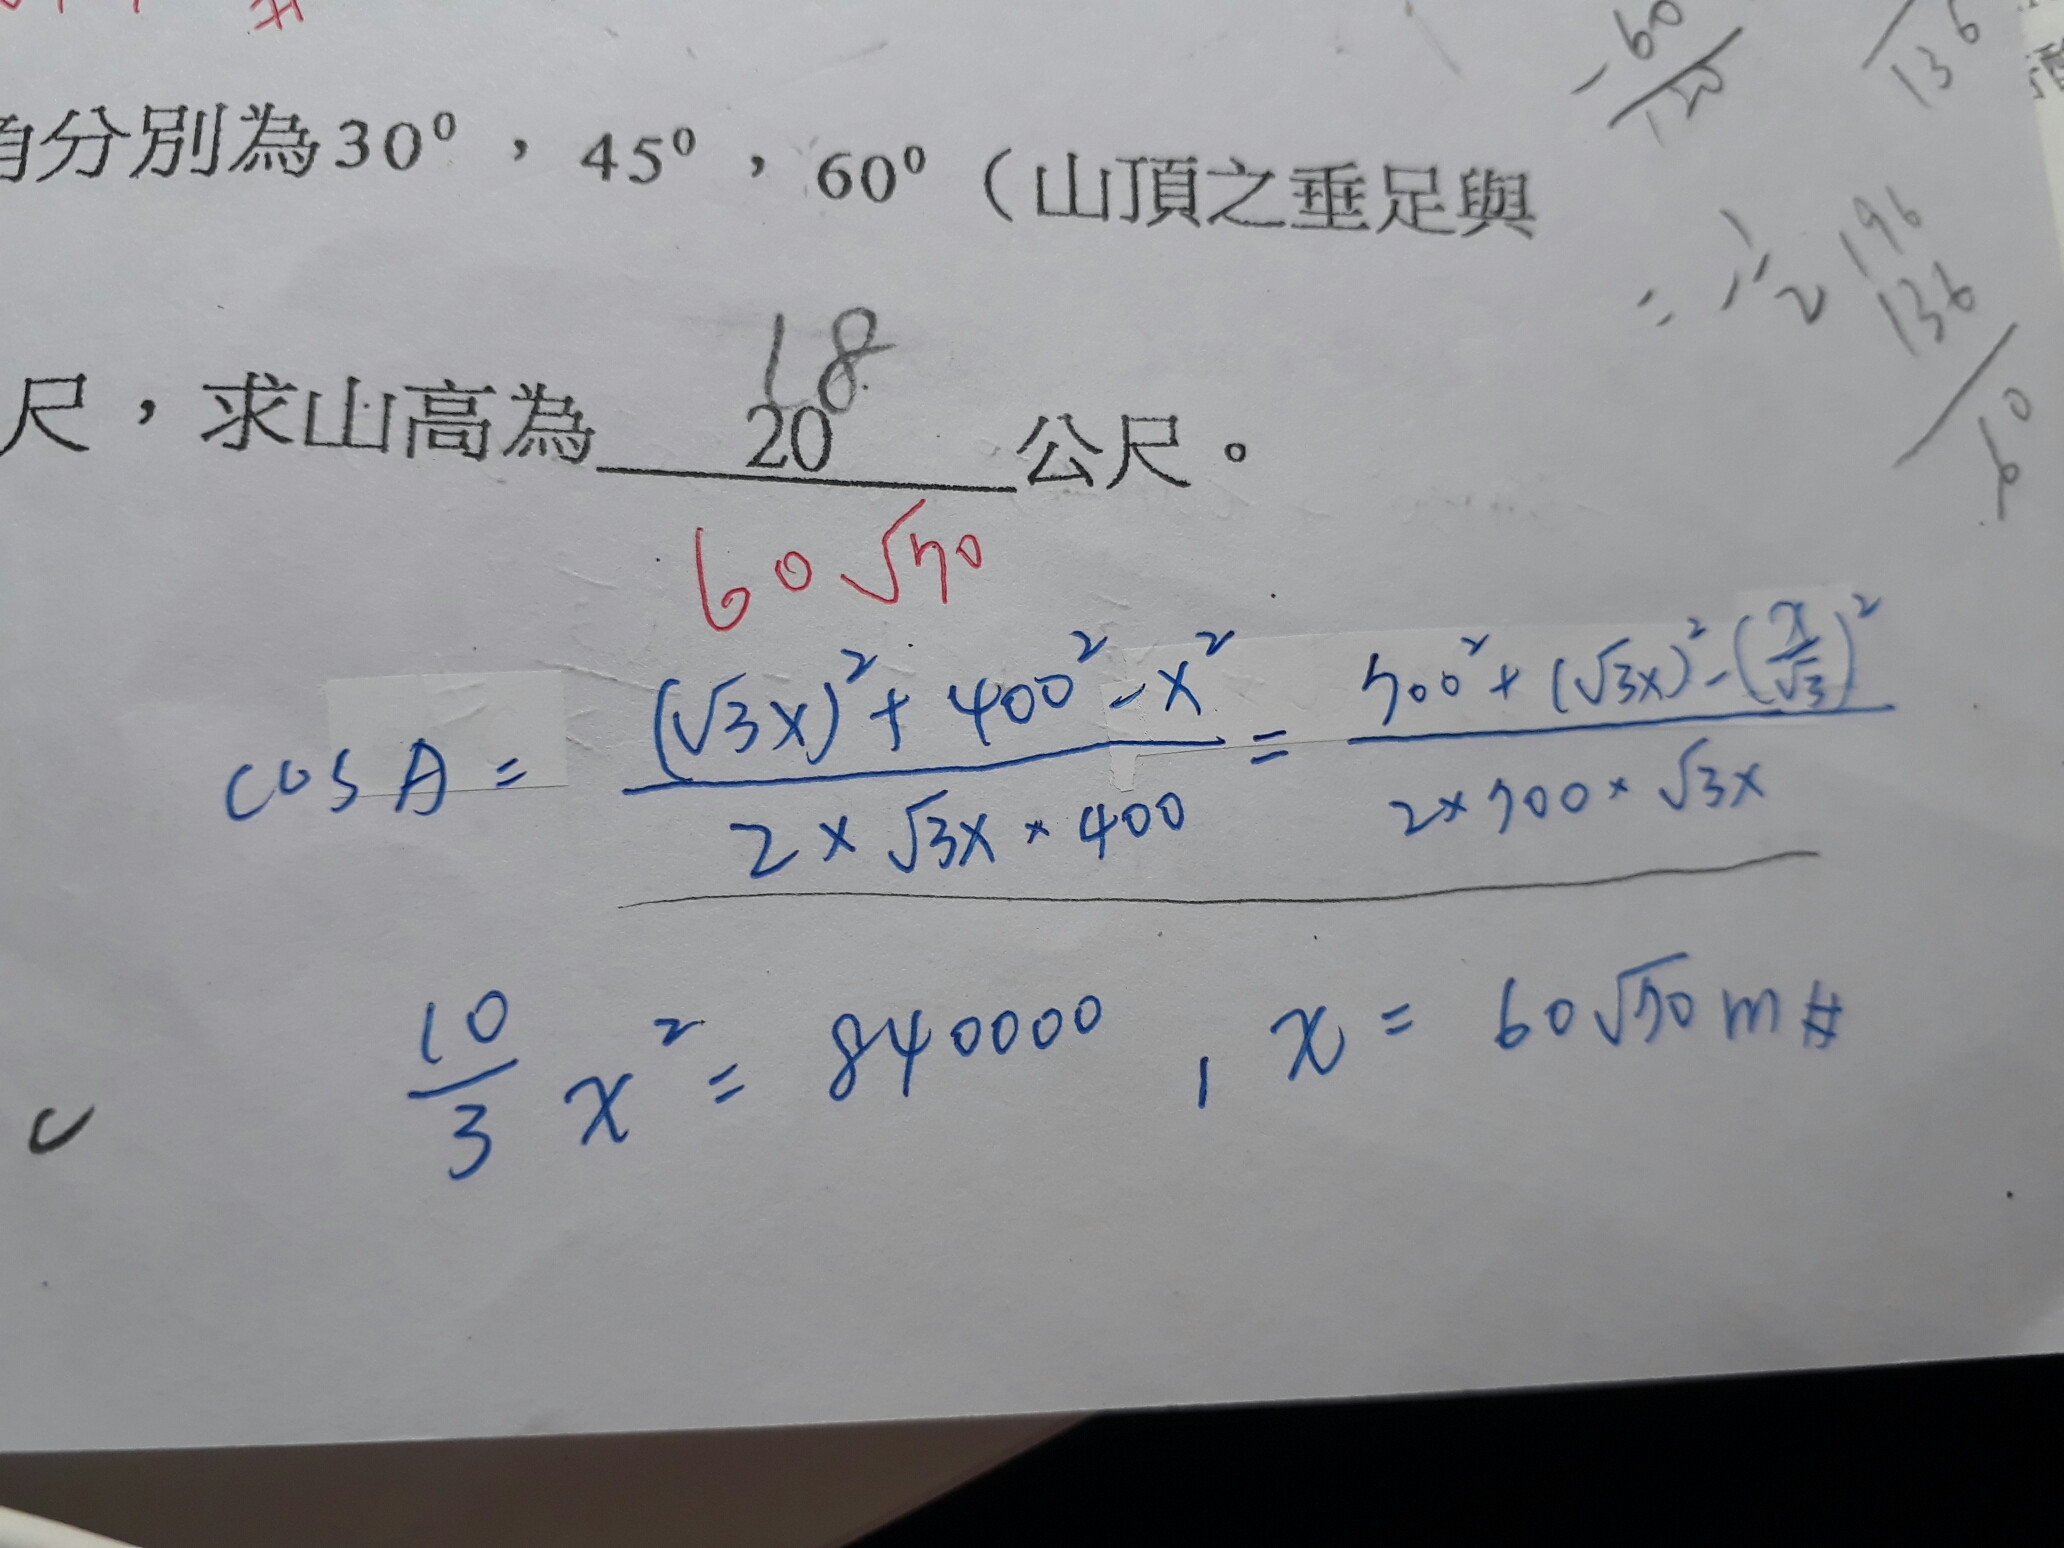 角分別為30⁰，45⁰，60⁰（山頂之垂足與
尺，求山高為 18 20 公尺。
60√70
cos A = ((√3x)² + 400² - x²)/(2 × √3x × 400) = (700² + (√3x)² - (x/√3)²)/(2 × 700 × √3x)
10/3 x² = 840000 , x = 60√70 m #
-60
120
136
= -1/2
196
136
60